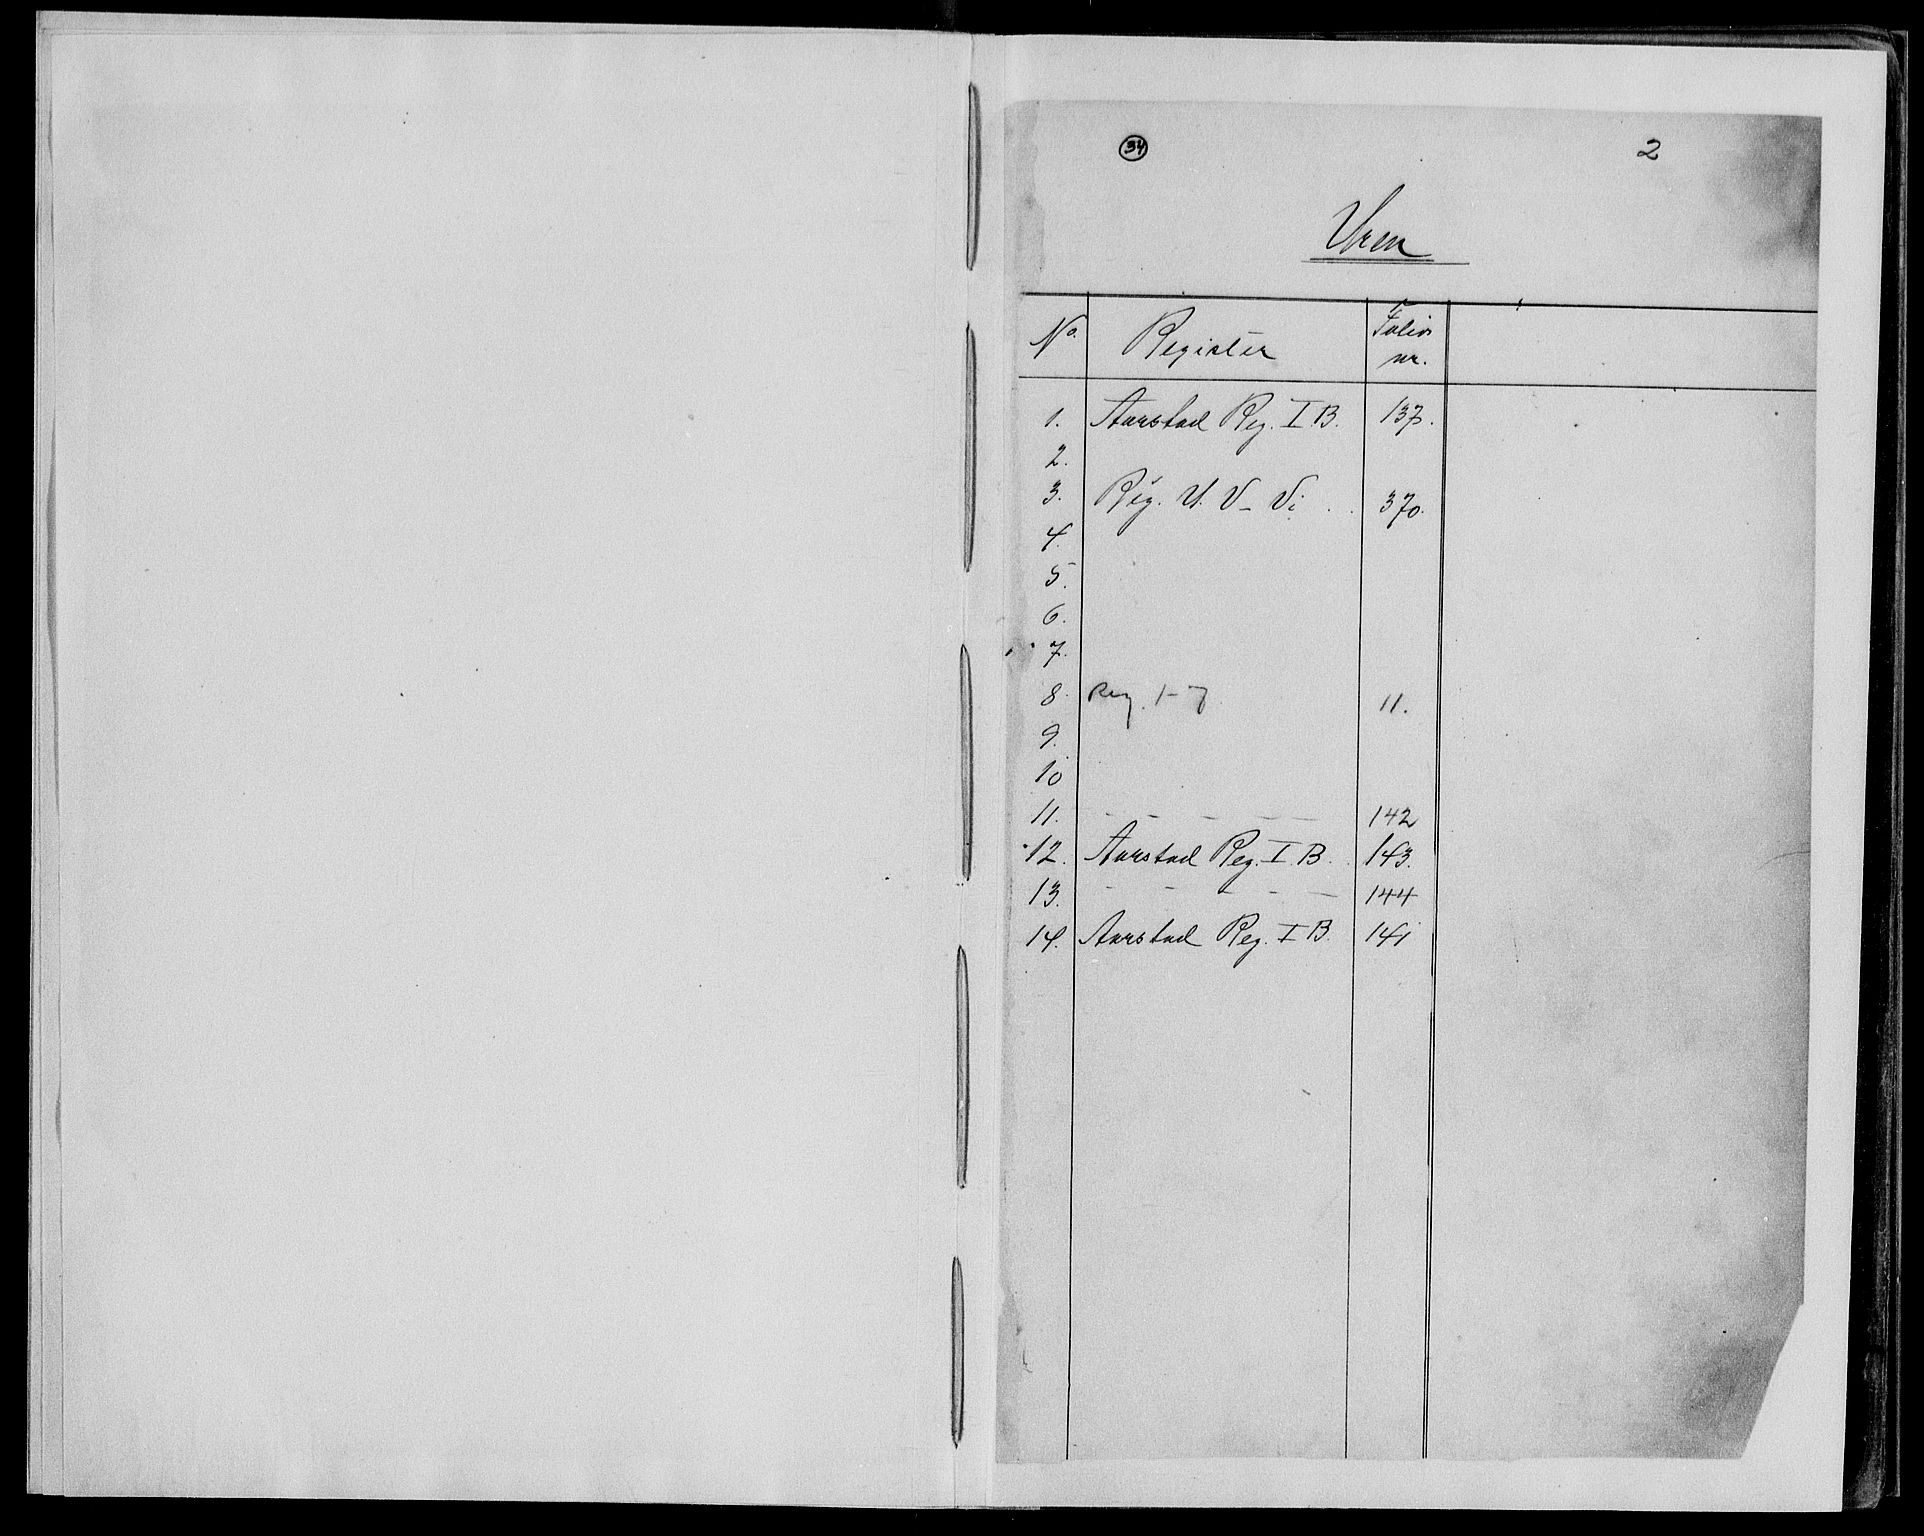 34
2
Uren
No. Register Folio nr.
1. Aarstad Reg. I B. 137.
2.
3. Reg. U. V - Vi . . 370.
4.
5.
6.
7.
8. Reg. 1-7 11.
9.
10
11. - - - - - 142
12. Aarstad Reg. I B. 143.
13. - - - - - 144
14. Aarstad Reg. I B. 141